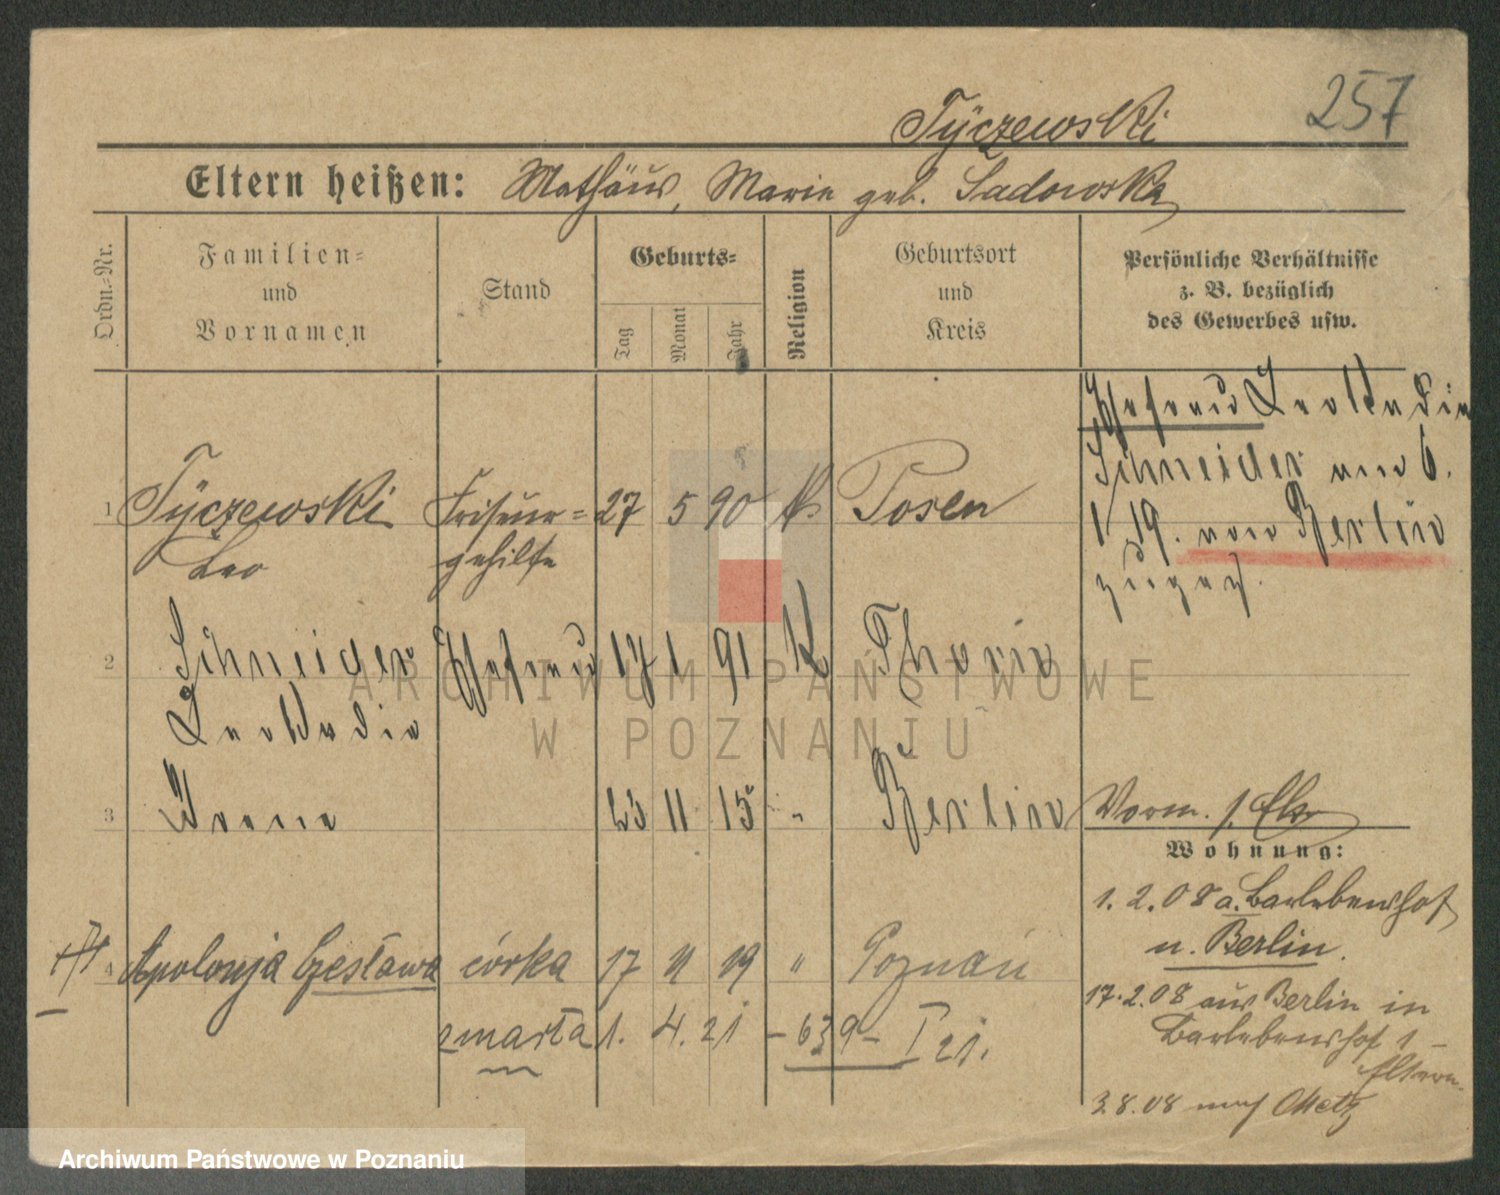 257
Tyczewski
Eltern heißen: Mathäus, Marie geb. Sadowska
Ordn.-Nr.
Familien-
und
Vornamen
Stand
Geburts-
Tag
Monat
Jahr
Religion
Geburtsort
und
Kreis
Persönliche Verhältnisse
z. B. bezüglich
des Gewerbes usw.
Ehefrau Leokadia
Schneider am 6.
1 19. von Berlin
zugez.
1 Tyczewski Friseur- 27 5 90 k. Posen
Leo gehilfe
2 Schneider Ehefrau 17 1 91 K Thorn
Leokadia
3 Irene 23 11 15 " Berlin
Vorm. s. Elt.
Wohnung:
1.2.08 a. Barlebenshof
n. Berlin.
4 Apolonja Czesława córka 17 11 19 " Poznań
17.2.08 aus Berlin in
Barlebenshof 1 -
Eltern.
zmarła 1. 4. 21 - 639 - I 21.
3.8.08 nach Metz
ARCHIWUM PAŃSTWOWE
W POZNANIU
Archiwum Państwowe w Poznaniu